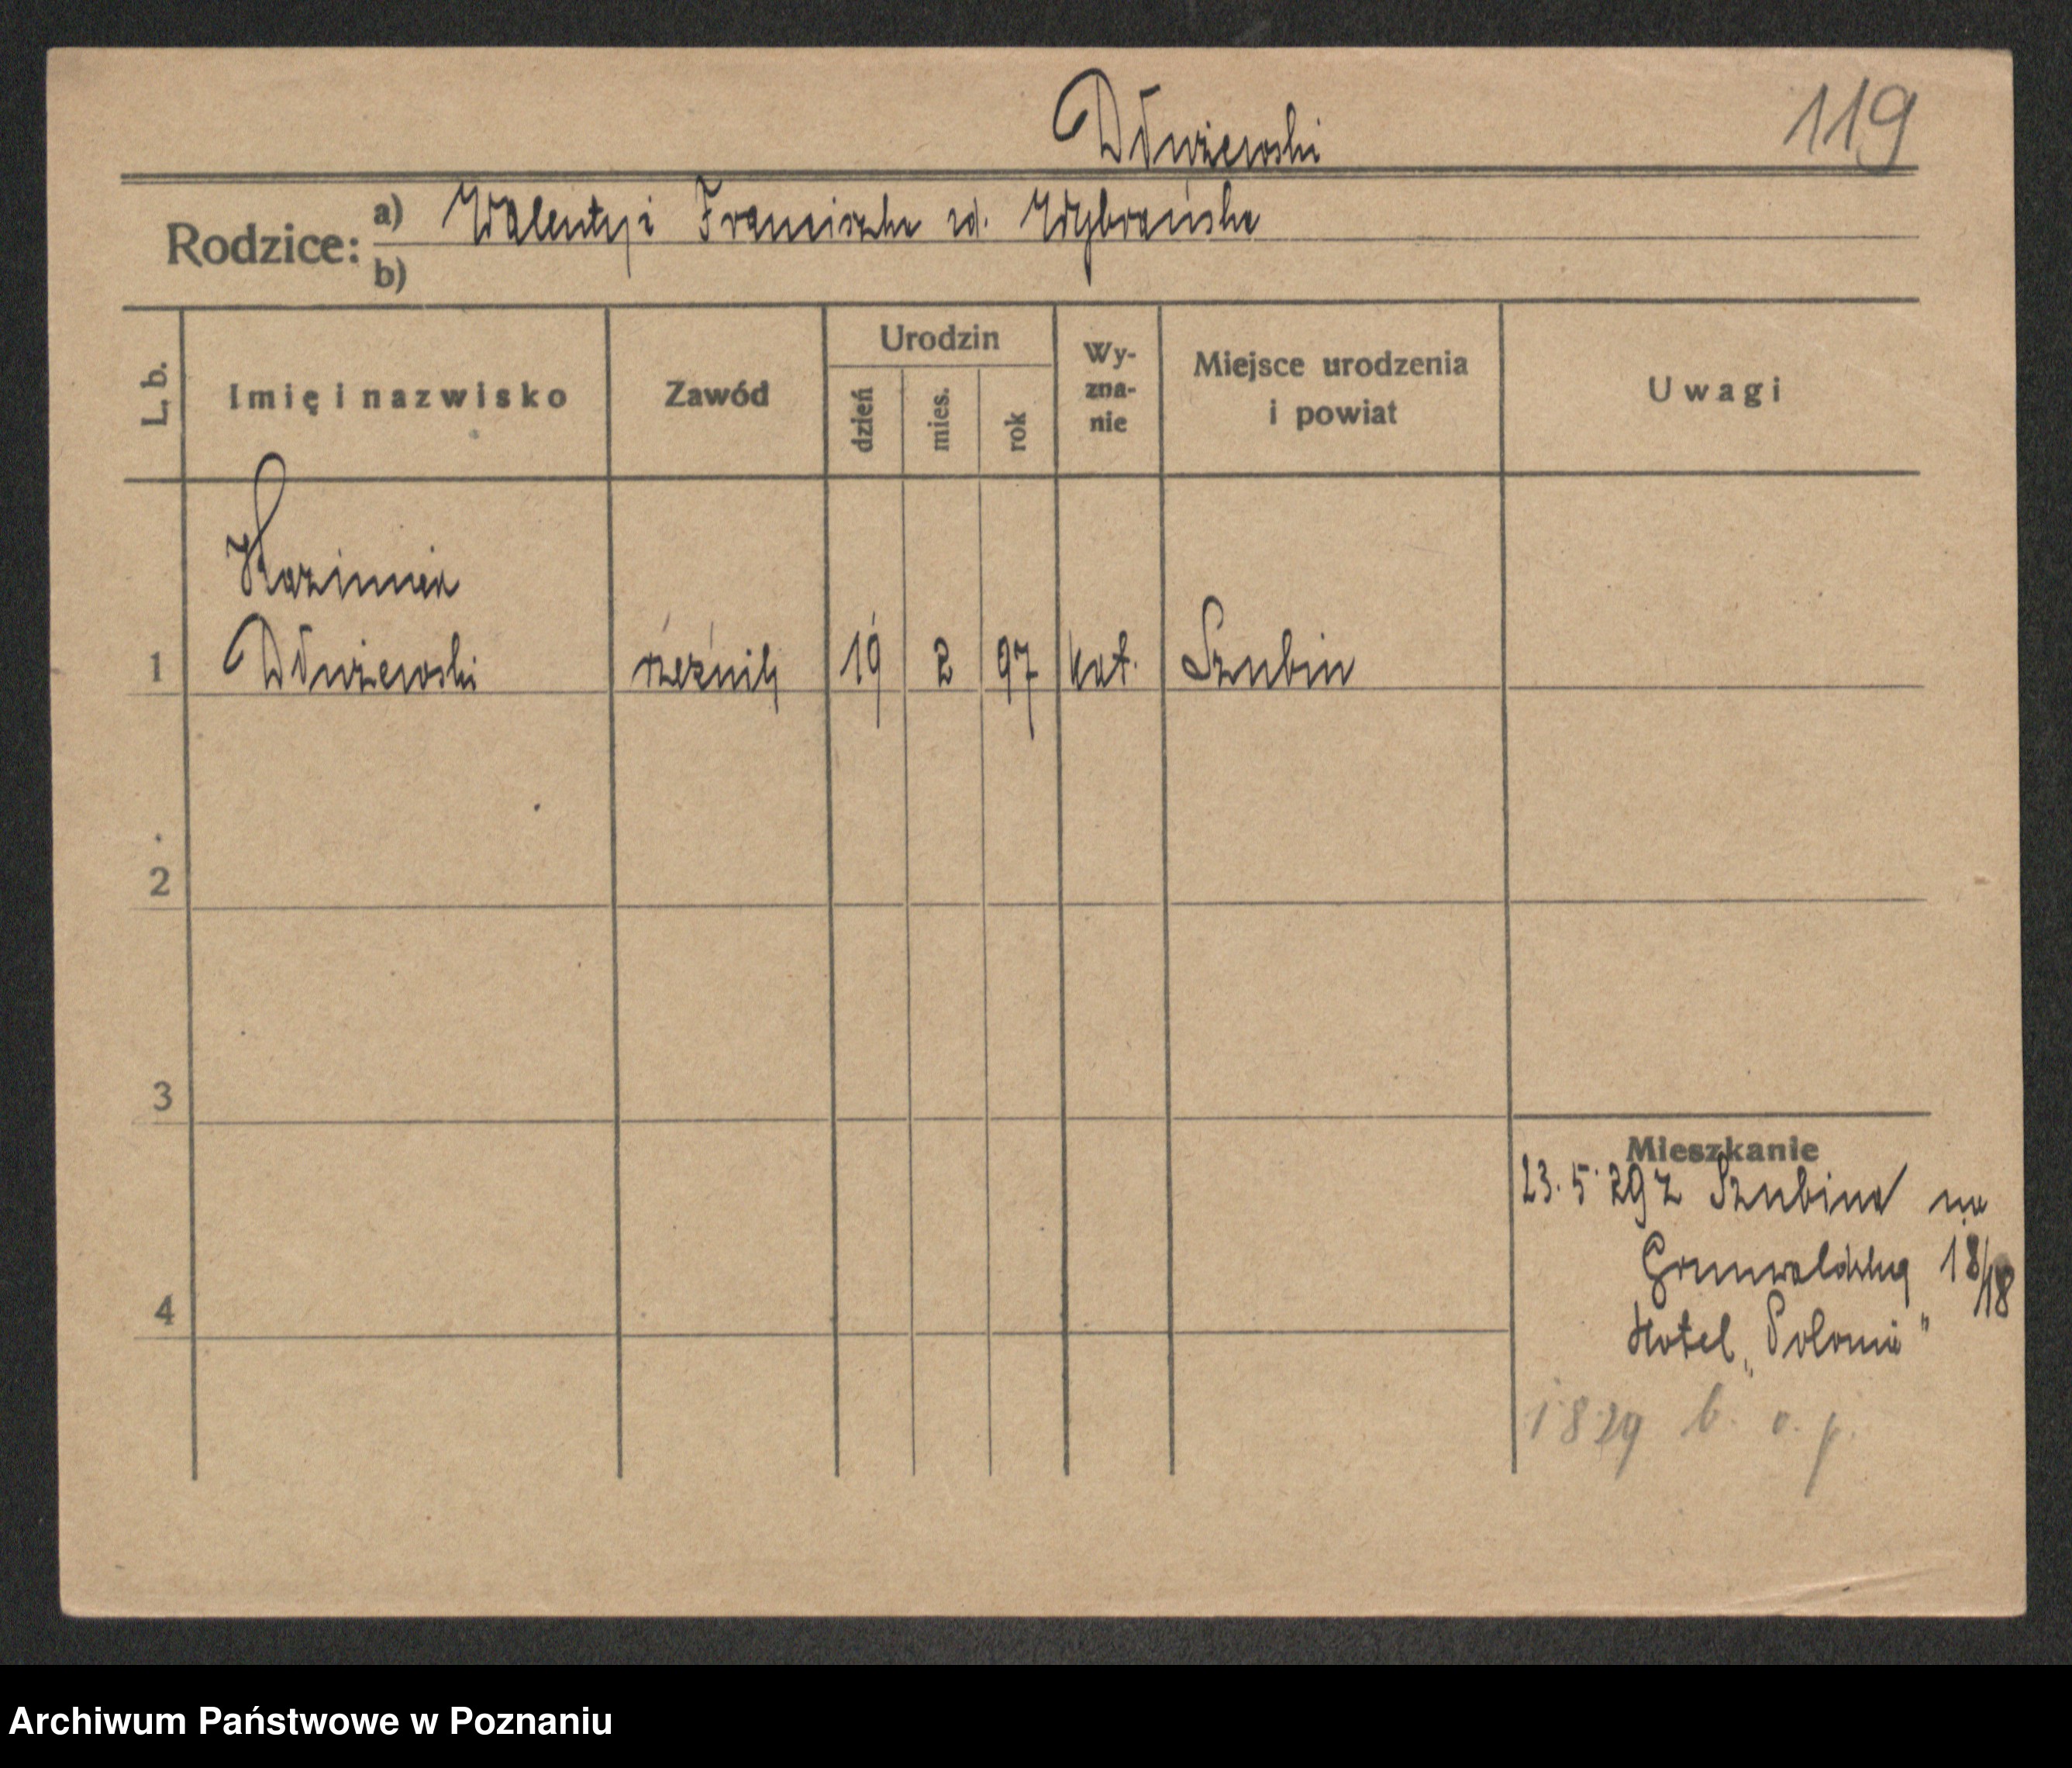 Dłużewski
119
Rodzice: a) Walenty i Franciszka zd. Wybrańska
b)
L. b.
Imię i nazwisko
Zawód
Urodzin
dzień
mies.
rok
Wy-
zna-
nie
Miejsce urodzenia
i powiat
Uwagi
Kazimierz
1 Dłużewski rzeźnik 19 2 97 kat. Szubin
2
3
4
Mieszkanie
23.5.29 z Szubina na
Grunwaldzką 18/18
Hotel „Polonia"
1829
Archiwum Państwowe w Poznaniu